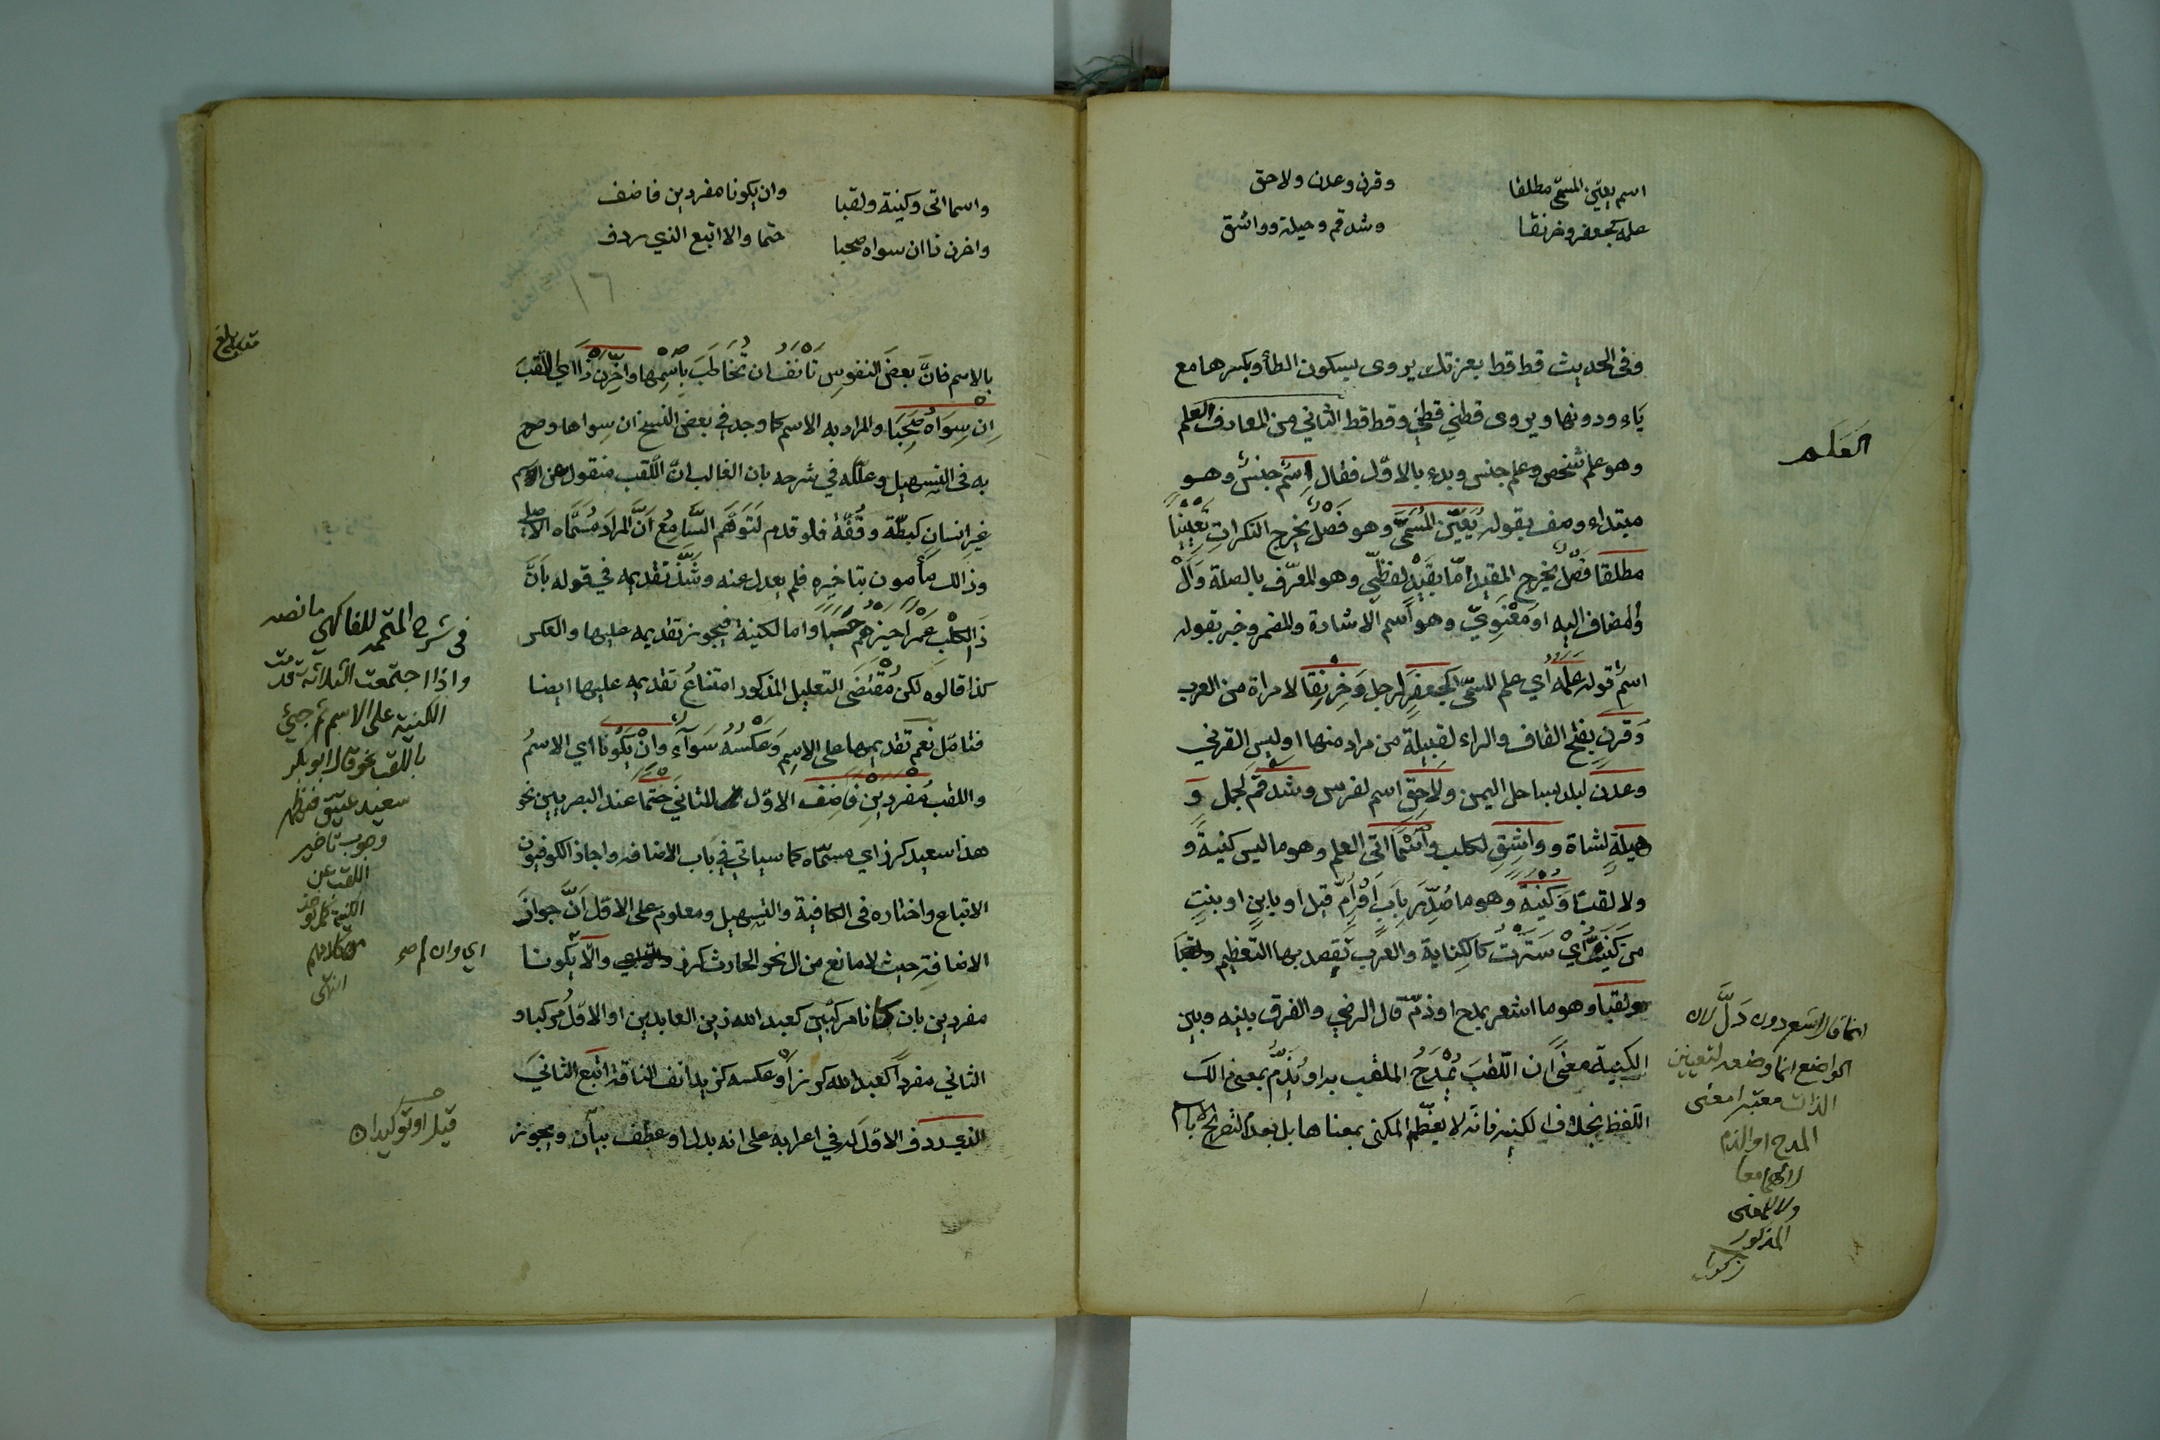 اسم يعين المسمى مطلقا
وقرن وعدن ولاحق
علمه كجعفر وخرنقا
وشدقم وهيلة وواشق
وفي الحديث قط قط بعزتك يروى بسكون الطاء وبكسرها مع
ياء ودونها ويروى قطني قطني وقط قط الثاني من المعارف العلم
وهو علم شخص وعلم جنس وبدء بالاول فقال اسم جنس وهو
مبتداء وصف بقوله يعين المسمى وهو فصل يخرج النكرات تعيينا
مطلقا فصل يخرج المقيد اما بقيد لفظي وهو المعرف بالصلة وال
والمضاف اليه او معنوي وهو اسم الاشارة والمضمر وخبر بقوله
اسم قوله علمه اي علم المسمى كجعفر لرجل وخرنقا لامراة من العرب
وقرن بفتح القاف والراء لقبيلة من مراد منها اويس القرني
وعدن لبلد بساحل اليمن ولاحق اسم لفرس وشدقم لجمل و
هيلة لشاة وواشق لكلب واسما اتى العلم وهو ما ليس كنية و
ولا لقبا وكنية وهو ما صدر باب او ام قيل او بابن او بنت
من كنيت اي سترت كالكناية والعرب تقصد بها التعظيم
ولقبا وهو ما اشعر بمدح او ذم قال الرضي والفرق بينه وبين
الكنية معنى ان اللقب يمدح الملقب به او يذم بمعنى ذالك
اللفظ بخلاف الكنيه فانه لا يعظم المكنى بمعناها بل بعدم التصريح بالاسم
العلم
انما قال اشعر دون دل لان
الواضع انما وضعه لتعيين
الذات معتبرا معنى
المدح او الذم
لا انهما معا
ولا للمعنى
المذكور
واسما اتى وكنية ولقبا
وان يكونا مفردين فاضف
واخرن ذا ان سواه صحبا
حتما والا اتبع الذي ردف
١٦
بالاسم فان بعض النفوس تانف ان تخاطب باسمها واخرن ذا اي اللقب
ان سواه صحبا والمراد به الاسم كما وجد في بعض النسخ ان سواها وصرح
به في التسهيل وعلله في شرحه بان الغالب ان اللقب منقول من اسم
غير انسان كبطة وقفة فلو قدم لتوهم السامع ان المراد مسماه الاصلي
وذالك مأمون بتاخيره فلم يعدل عنه وشذ تقديمه في قوله بان
ذا الكلب عمرا خيرهم حسبا واما الكنية فيجوز تقديمه عليها والعكس
كذا قالوه لكن مقتضى التعليل المذكور امتناع تقديمه عليها ايضا
فتامل نعم تقديمها على الاسم وعكسه سواء وان يكونا اي الاسم
واللقب مفردين فاضف الاول للثاني حتما عند البصريين نحو
هذا سعيد كرز اي مسماه كما سياتي في باب الاضافه واجاز الكوفيون
الاتباع واختاره في الكافية والتسهيل ومعلوم على الاول ان جواز
الاضافة حيث لا مانع من ال نحو الحارث كرز والا يكونا
مفردين بان كانا مركبين كعبد الله زين العابدين او الاول مركبا و
الثاني مفردا كعبد الله كرز او عكسه كزيد انف الناقة اتبع الثاني
الذي ردف الاول له في اعرابه على انه بدل او عطف بيان ويجوز
في شرح المتمم للفاكهي ما نصه
واذا اجتمعت الثلاثة قدمت
الكنية على الاسم ثم جيئ
باللقب نحو قال ابو بكر
سعيد عتيق فظهر
وجوب تاخير
اللقب عن
الكنية كما يوخذ
من كلامهم
انتهى
اي وان لم
قيل او توكيدان